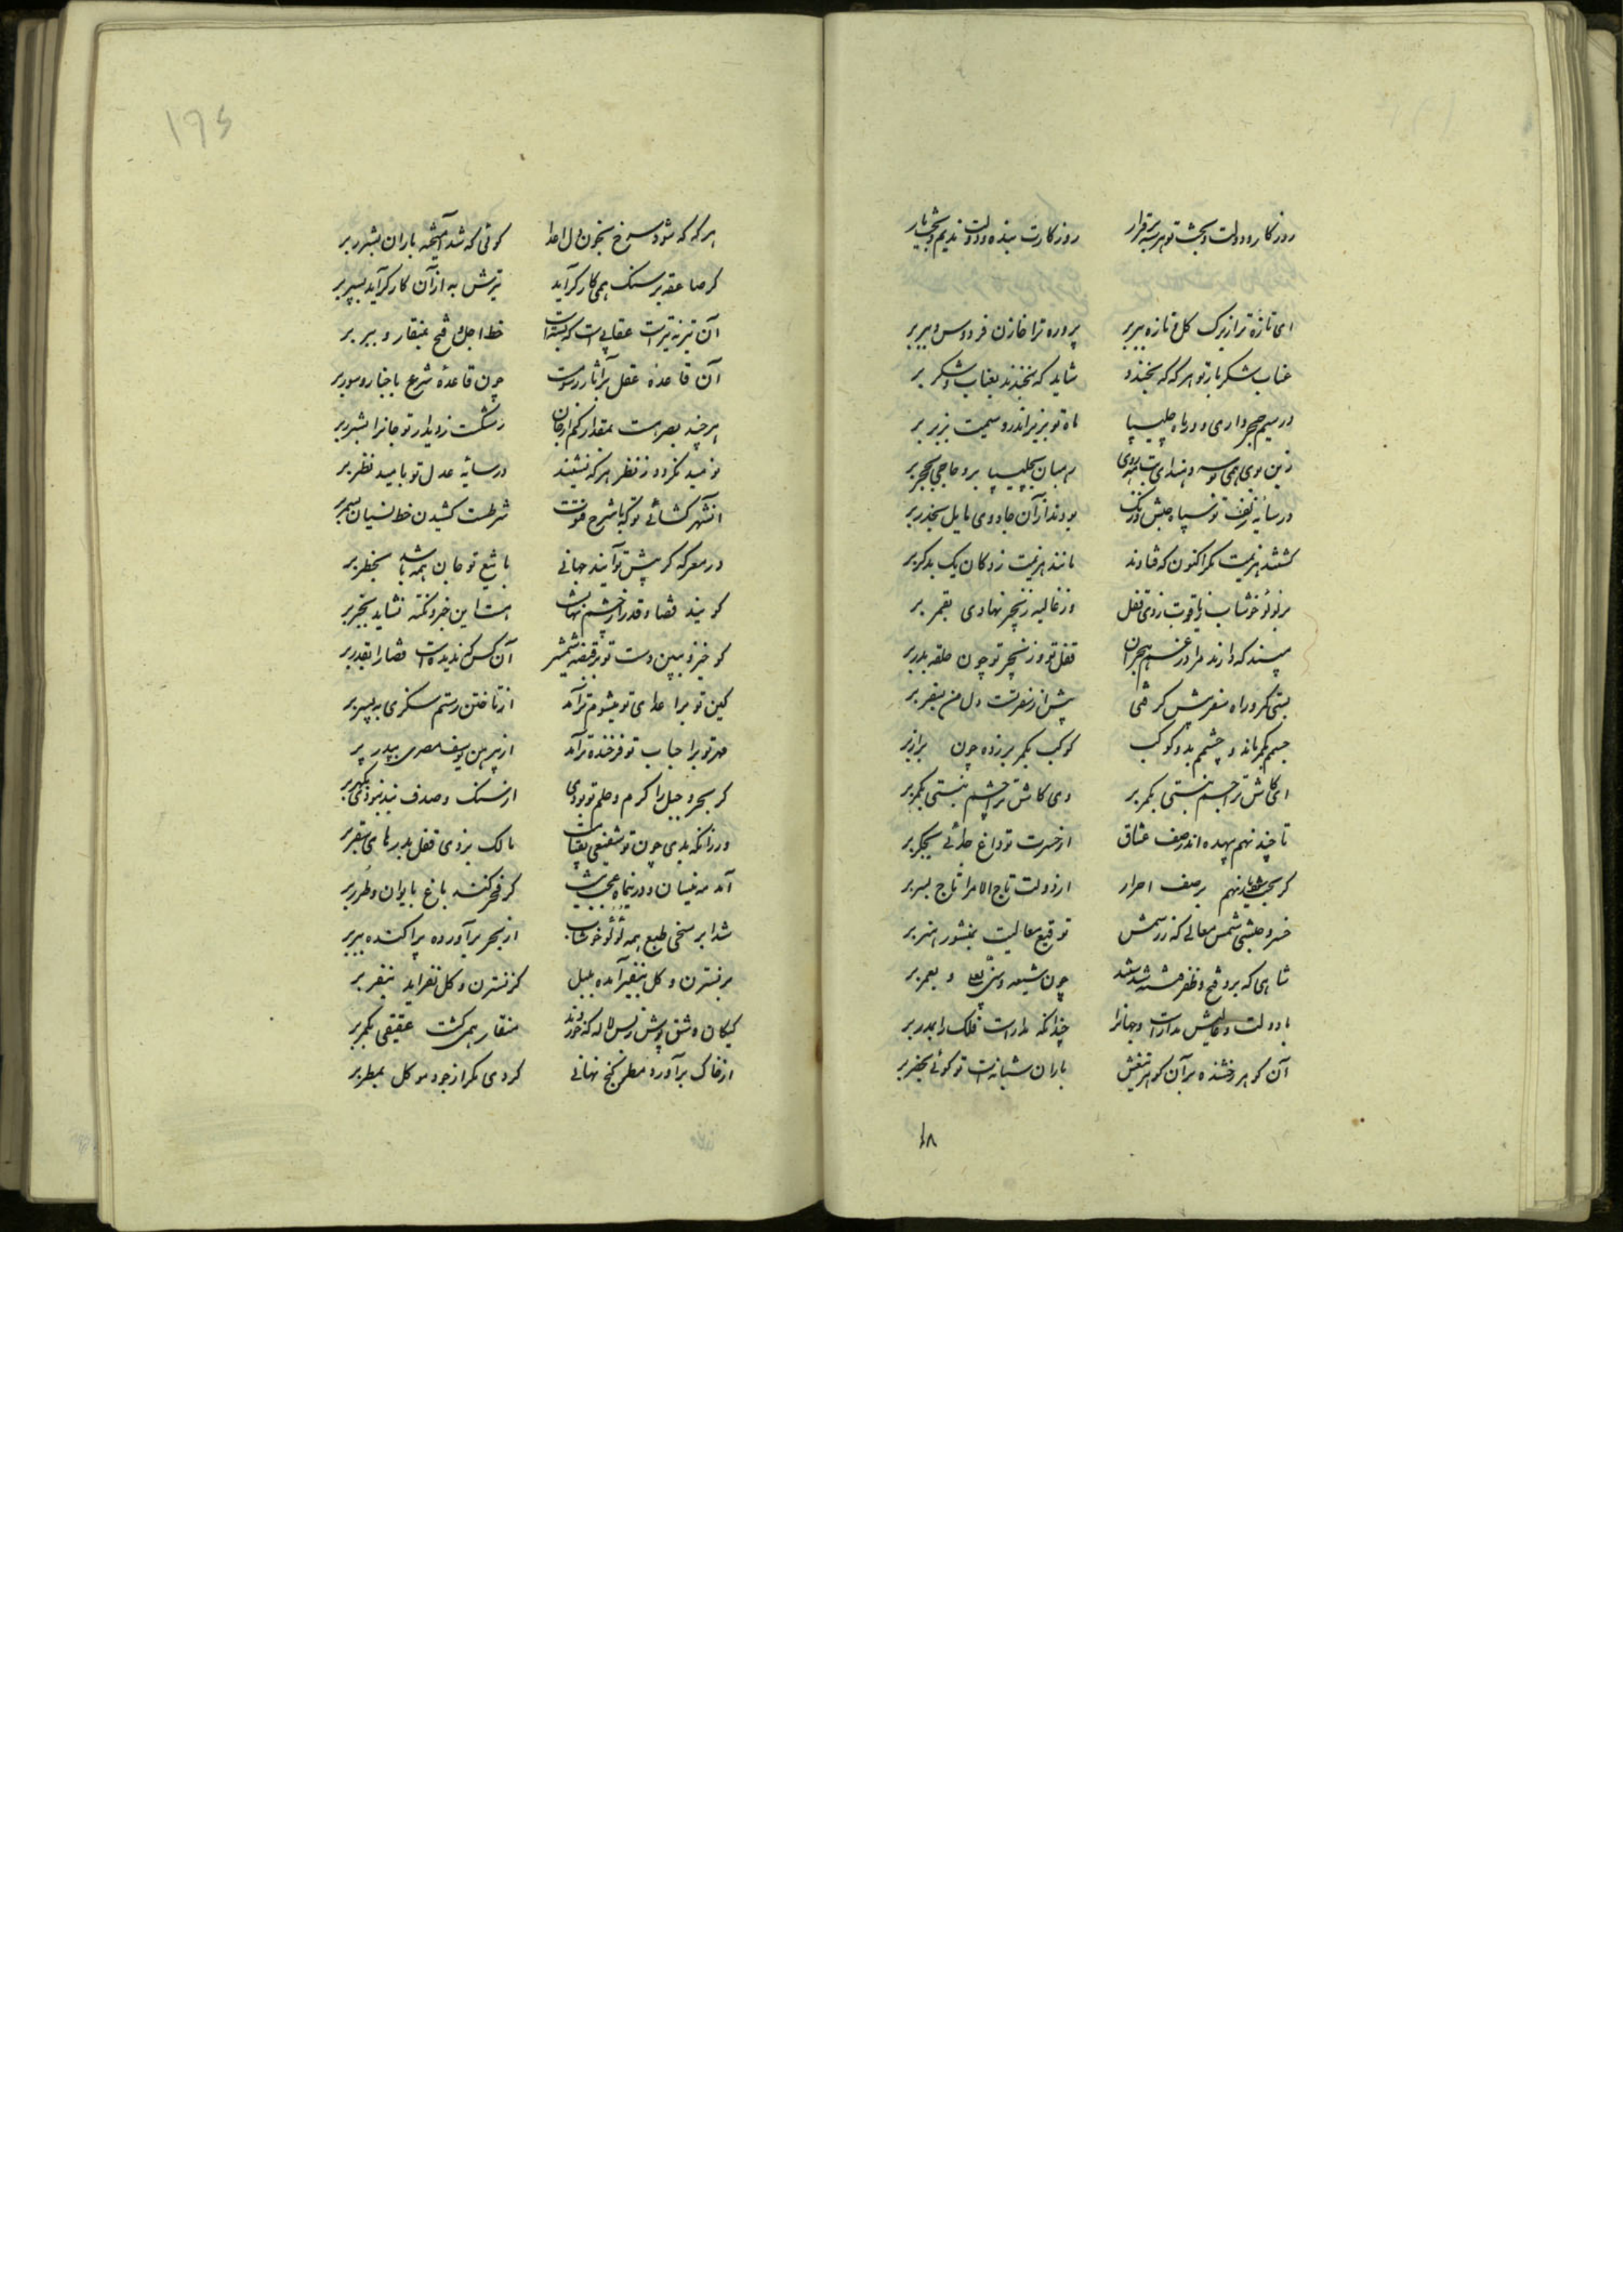 روزگار و دولت و بخت تو هر سه برقرار روزگارت بنده و دولت ندیم و بخت یار
ای تازه‌تر از برگ گل تازه ببر بر پرورده ترا خازن فردوس ببر بر
عناب شکربار تو هرگه که بخندد شاید که بخندند بعناب و شکر بر
در سیم حجر داری و در ماه چلیپا ماه تو بزیر اندر و سیمت بزبر بر
زین روی همی بوسه رهبان بچلیپا بر و حاجی بحجر بر
در سایه زلف تو سپاه حبش و زنگ بودند از آن جادوی مایل بخدر بر
گشتند هزیمت مگر اکنون که فتادند مانند هزیمت زدگان یک بدگر بر
بر لولو خوشاب ز یاقوت زدی قفل وز غالیه زنجیر نهادی بقمر بر
مپسند که دارند مرا در غم هجران قفل تو و زنجیر تو چون حلقه بدر بر
بستی کمر و راه سفر پیش گرفتی پیش از سفر تست دل من بسفر بر
جسمم کمر ماند و چشمم بدو کوکب کوکب بکمر بر زده چون
ای کاش ترا جسم ببستی بکمر بر وی کاش ترا چشم ببستی بکمر بر
تا چند نهم بیهده اندر صف عشاق از حسرت تو داغ جدائی بجگر بر
گر بخت نهم بر صف احرار از دولت تاج الامرا تاج بسر بر
خسرو حبشی شمس معالی که ز رسمش توقیع معالیست بمنشور هنر بر
شاهی که برو فتح و ظفر چون شیعه و سنی بعلی و بعمر بر
با دولت و مداراست جهانرا چندانکه مداراست فلک را بمدر بر
آن گوهر رخشنده بر آن گوهر تیغش باران شبانه‌ست تو گوئی بخضر بر
۱۸
۱۹۶
هرگه که شود سرخ بخون دل اعدا گوئی که شد آمیخته باران بشرر بر
گر صاعقه بر سنگ همی کارگر آید تیرش به از آن کارگر آید بسپر بر
آن تیر نه تیرست عقابیست که بسته‌است خط اجل و فتح بمنقار و بپر بر
آن قاعده عقل بر آثار درست چون قاعده شرع باخبار و سور بر
هرچند بصر هست بمقدار کم از جان رشکست ز دیدار تو جانرا ببصر بر
نومید نگردد ز نظر هرکه نشیند در سایه عدل تو بامید نظر بر
شرطست کشیدن خط نسیان بسمر بر
در معرکه گر پیش تو آیند جهانی با تیغ تو جان همه باشد بخطر بر
گویند قضا و قدر از چشم نهانست هست این خبر و تکیه نشاید بخبر بر
گو خیز و ببین دست تو بر قبضه شمشیر آن کس که ندیده‌ست قضا را بقدر بر
کین تو بر اعدای تو میشوم‌تر آمد از تاختن رستم سگزی به پسر بر
مهر تو بر احباب تو فرخنده‌تر آمد از پیرهن یوسف مصری بپدر بر
گر بحر و جبل را کرم و حلم تو بودی از سنگ و صدف بند نبودی بگهر بر
ورزانکه بدی چون تو شفیعی مالک بزدی قفل بدرهای سقر بر
آمد مه نیسان و درین ماه عجب نیست گر فخر کند باغ بایوان و طرر بر
شد ابر سخی طبع همه لولو خوشاب از بحر برآورده پراکنده ببر بر
بر نسترن و گل بنفیر آمده بلبل کز نسترن و گل نفر آید بنفر بر
کبکان وشی پوش ز بس لاله که خوردند منقار همی گشت عقیقی بکمر بر
از خاک برآورد مطر گنج نهانی کردی مگر از جود موکل بمطر بر